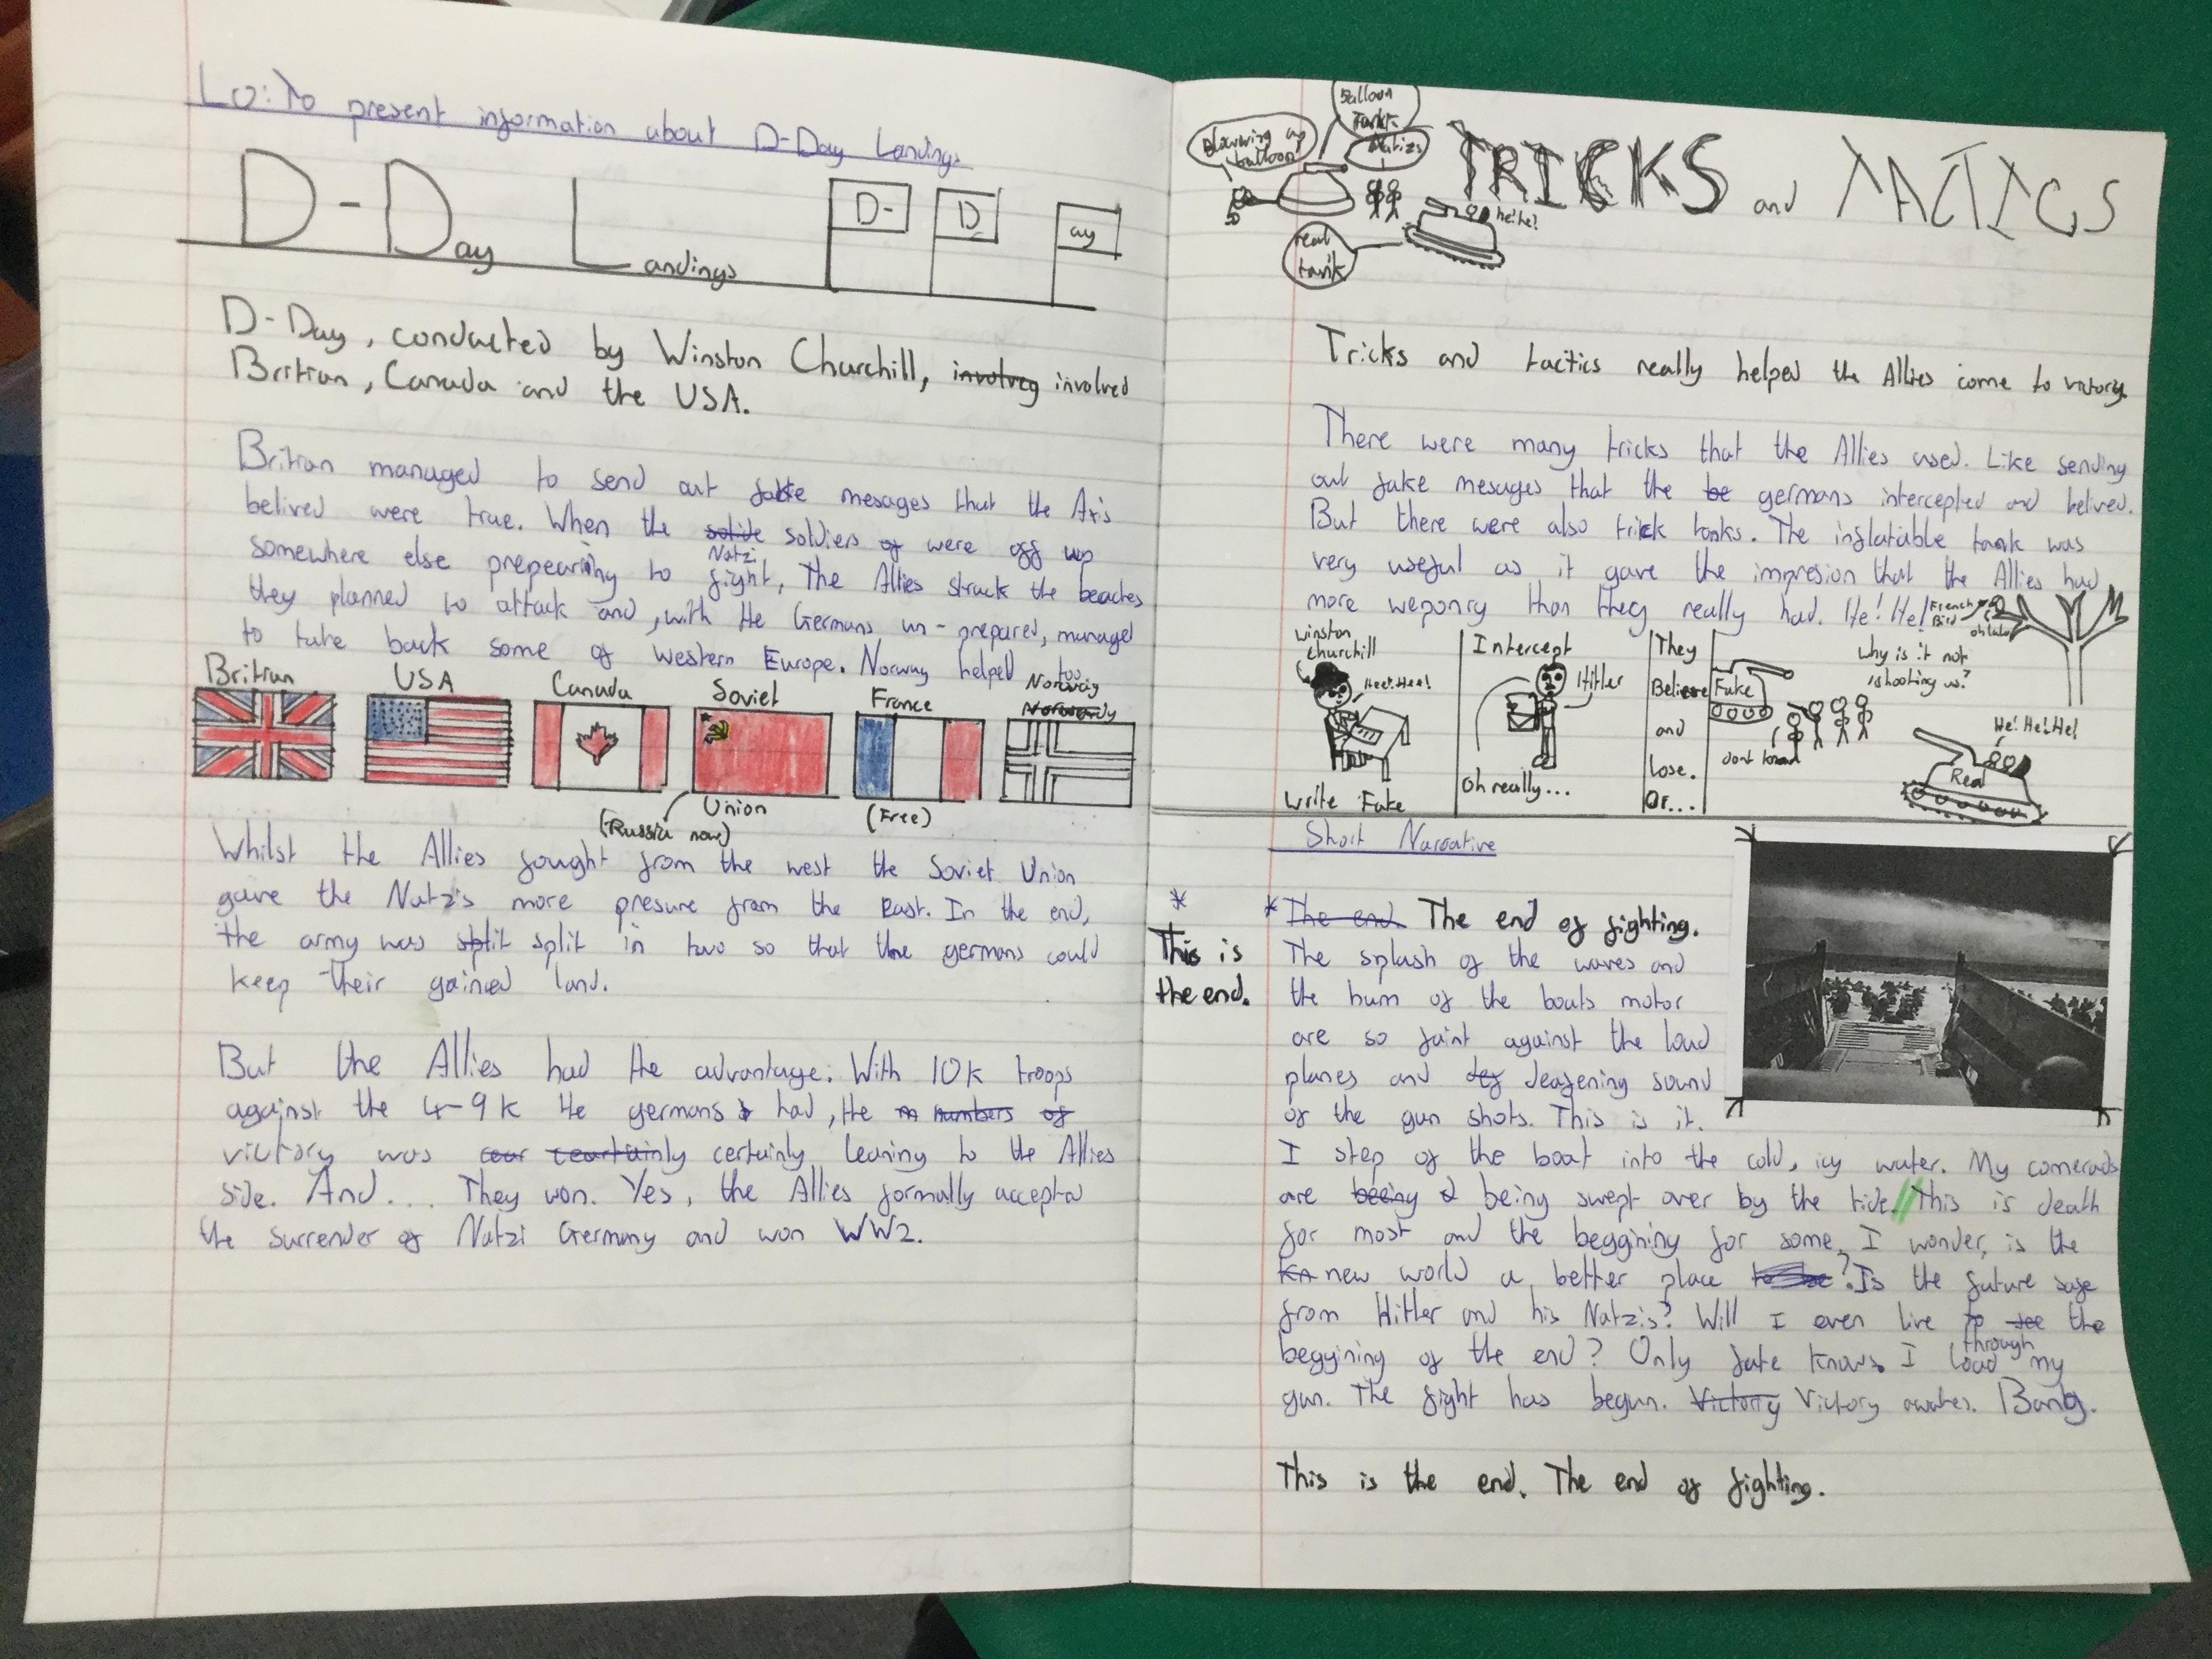 LO: To present information about D-Day Landings
D-Day Landings
D-
D
ay
D-Day, conducted by Winston Churchill, involveg involved
Britian, Canada and the USA.
Britian managed to send out fake mesages that the Axis
belived were true. When the soldie soldiers of were off up
Natzi
somewhere else prepearing to fight, The Allies struck the beaches
they planned to attack and, with the Germans un-prepared, managed
to take back some of western Europe. Norway helped too.
Britian
USA
Canada
Soviet
France
Norway
Union
(Russia now)
(Free)
Whilst the Allies fought from the west the Soviet Union
gave the Natzis more presure from the East. In the end,
the army was split in two so that the germans could
keep their gained land.
But the Allies had the advantage. With 10k troops
against the 4-9k the germans had, the numbers of
victory was certainly leaning to the Allies
side. And.... They won. Yes, the Allies formally accepted
the surrender of Natzi Germany and won WW2.
Blowing up
balloon
Balloon
Tank
Natizs
real
tank
he! he!
TRICKS and TACTICS
Tricks and tactics really helped the Allies come to victory.
There were many tricks that the Allies used. Like sending
out fake mesages that the be germans intercepted and belived.
But there were also trick tanks. The inflatable tank was
very useful as it gave the impresion that the Allies had
more weponry than they really had. He! He!
French
Bird
oh lala
Winston
Churchill
Hee! Hee!
Write Fake
Intercept
Hitler
Oh really...
They
Believe
and
Lose.
Or...
Fake
dont know
Why is it not
shooting us?
He! He! He!
Real
Short Narrative
*
This is
the end.
* The end. The end of fighting.
The splash of the waves and
the hum of the boats motor
are so faint against the loud
planes and def deafening sound
of the gun shots. This is it.
I step of the boat into the cold, icy water. My comerads
are beeing being swept over by the tide. // This is death
for most and the beggining for some, I wonder, is the
new world a better place ? Is the future safe
from Hitler and his Natzis? Will I even live to see the
through
beggining of the end? Only fate knows. I load my
gun. The fight has begun. Victorry Victory awaites. Bang.
This is the end. The end of fighting.